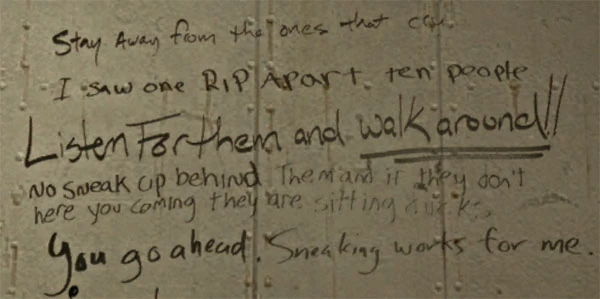 Stay Away from the ones that
I saw one RIP APArt ten people
Listen For them and walk around!!
No sneak up behind Them and if they don't
here you coming they are sitting ducks.
You go ahead. Sneaking works for me.